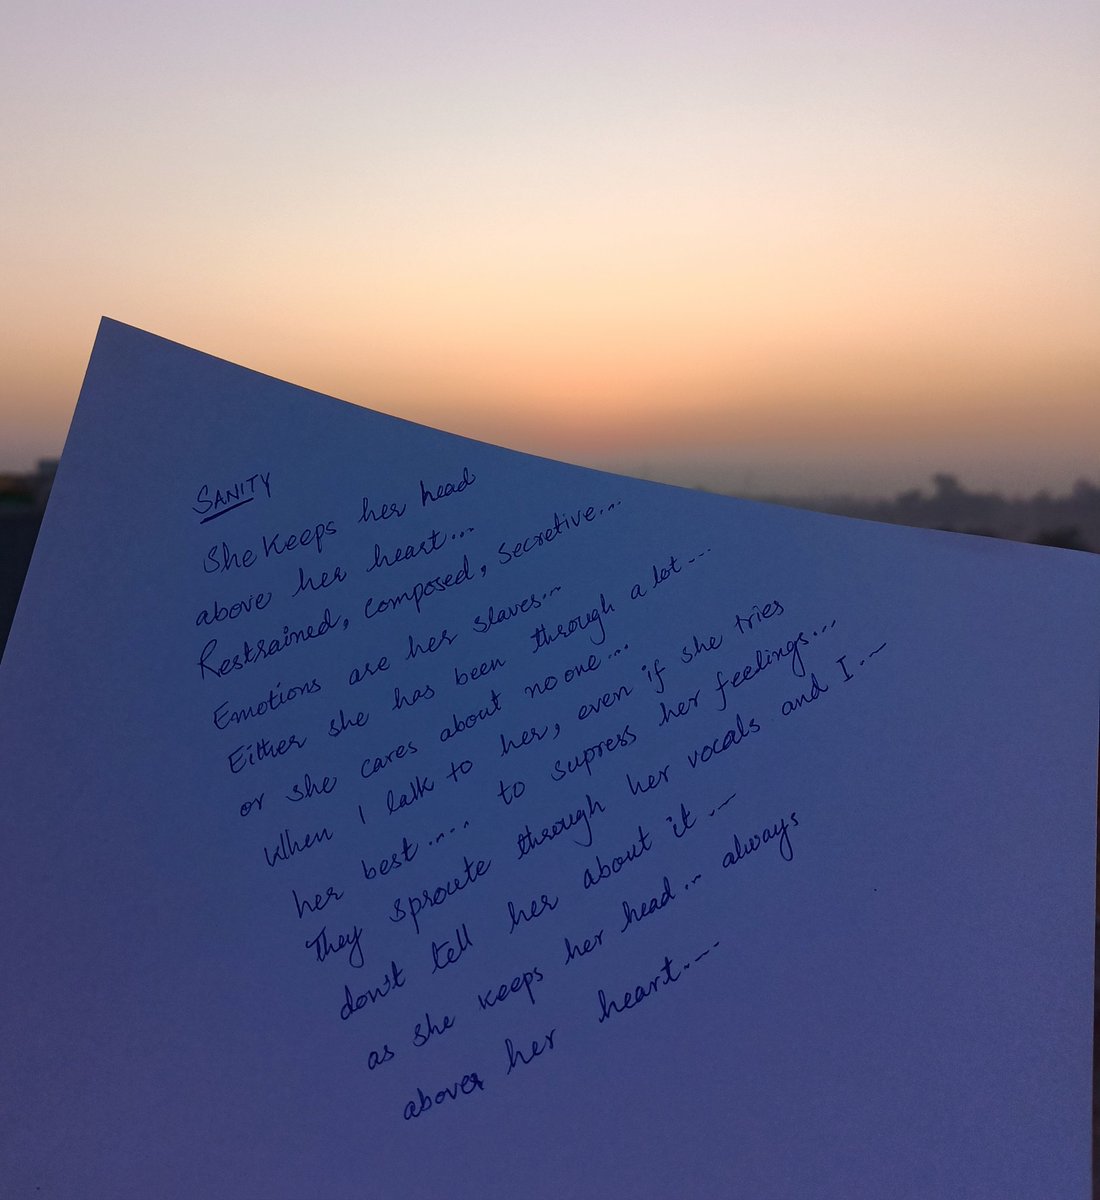 SANITY
She keeps her head
above her heart...
Restrained, composed, secretive...
Emotions are her slaves...
Either she has been through a lot...
or she cares about no one...
When I talk to her, even if she tries
her best.... to supress her feelings...
They sproute through her vocals and I...
don't tell her about it...
as she keeps her head... always
above her heart....